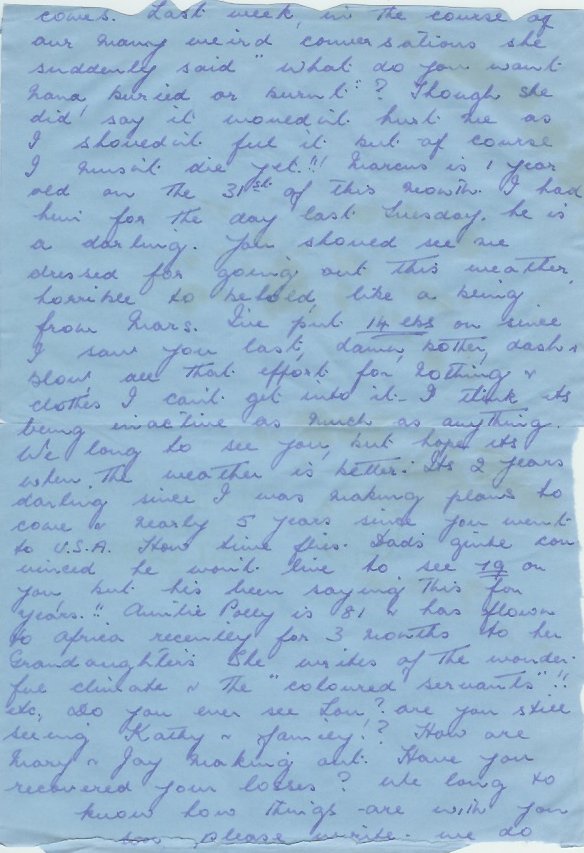 comes. Last week, in the course of
our many weird conversations she
suddenly said "what do you want
Nana, buried or burnt"? Though she
did, say it woued'nt hurt me as
I shoued'nt feel it but of course
I musn't die yet!!! Marcus is 1 year
old on the 31st of this month. I had
him for the day last Tuesday, he is
a darling. You shoued see me
dressed for going out this weather,
horriblee to behold, like a being
from Mars. I've put 14 lbs on since
I saw you last, damn, bother, dash &
blow, all that effort for nothing &
clothes I can't get into it. I think its
being inactive as much as anything.
We long to see you, but hope its
when the weather is better. Its 2 years
darling since I was making plans to
come & nearly 5 years since you went
to U.S.A. How time flies. Dad's quite con
vinced he won't live to see 79 on
you, but his been saying this for
years.!! Auntie Polly is 81 & has flown
to Africa recently for 3 months to her
Grandaughters She writes of the wonder-
ful climate & the "coloured servants"!!
etc, Do you ever see Lou? are you still
seeing Kathy & family!? How are
Mary & Jay making out. Have you
recovered your losses? We long to
know how things are with you
please write. we do